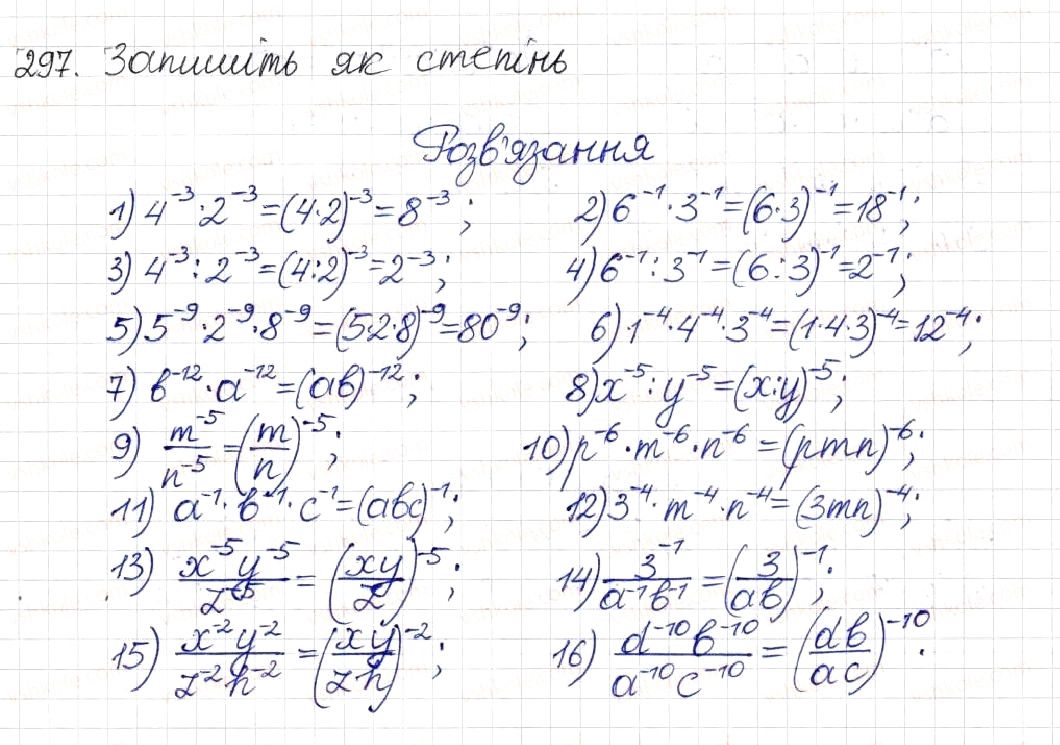 297. Запишіть як степінь
Розв'язання
1) 4⁻³·2⁻³=(4·2)⁻³=8⁻³; 2) 6⁻¹·3⁻¹=(6·3)⁻¹=18⁻¹;
3) 4⁻³:2⁻³=(4:2)⁻³=2⁻³; 4) 6⁻¹:3⁻¹=(6:3)⁻¹=2⁻¹;
5) 5⁻⁹·2⁻⁹·8⁻⁹=(5·2·8)⁻⁹=80⁻⁹; 6) 1⁻⁴·4⁻⁴·3⁻⁴=(1·4·3)⁻⁴=12⁻⁴;
7) в⁻¹²·a⁻¹²=(aв)⁻¹²; 8) x⁻⁵:y⁻⁵=(x:y)⁻⁵;
9) m⁻⁵/n⁻⁵=(m/n)⁻⁵; 10) p⁻⁶·m⁻⁶·n⁻⁶=(pmn)⁻⁶;
11) a⁻¹·в⁻¹·c⁻¹=(aвc)⁻¹; 12) 3⁻⁴·m⁻⁴·n⁻⁴=(3mn)⁻⁴;
13) x⁻⁵y⁻⁵/z⁻⁵=(xy/z)⁻⁵; 14) 3⁻¹/a⁻¹в⁻¹=(3/aв)⁻¹;
15) x⁻²y⁻²/z⁻²h⁻²=(xy/zh)⁻²; 16) d⁻¹⁰в⁻¹⁰/a⁻¹⁰c⁻¹⁰=(dв/ac)⁻¹⁰.